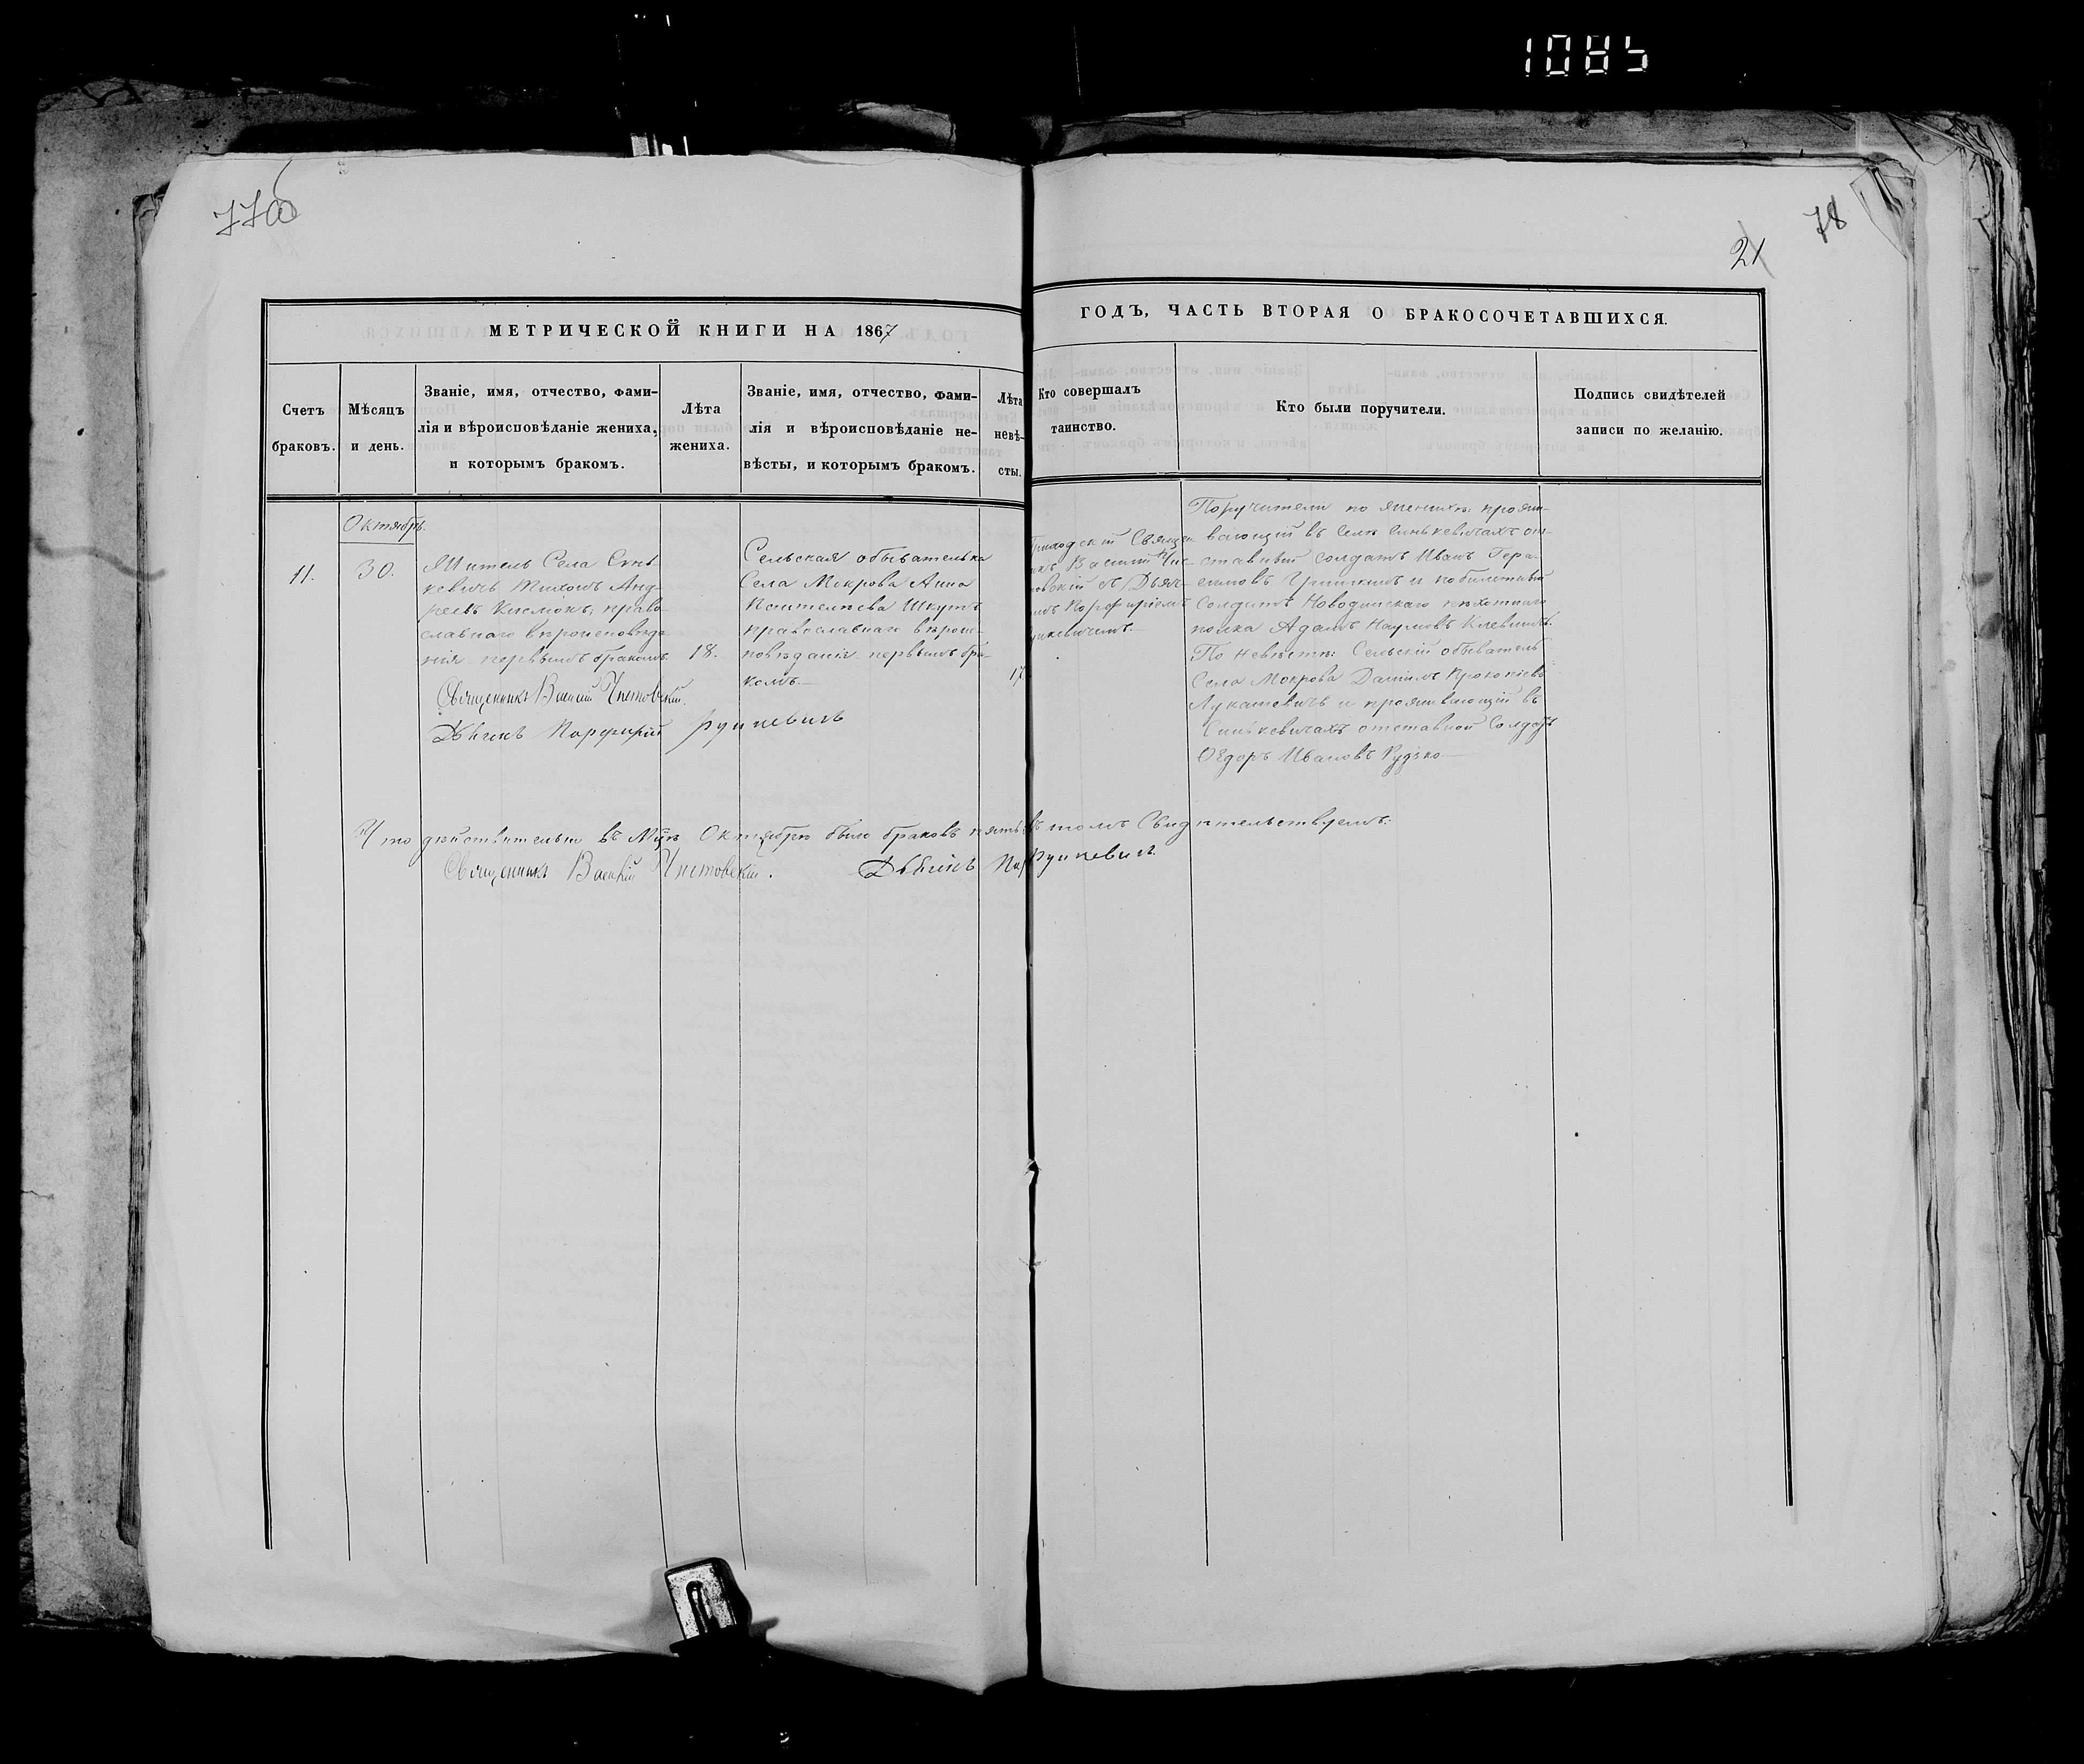 1085
770
78
21
МЕТРИЧЕСКОЙ КНИГИ НА 1867
ГОДЪ, ЧАСТЬ ВТОРАЯ О БРАКОСОЧЕТАВШИХСЯ.
Счетъ
браковъ.
Мѣсяцъ
и день.
Званіе, имя, отчество, фами-
лія и вѣроисповѣданіе жениха,
и которымъ бракомъ.
Лѣта
жениха.
Званіе, имя, отчество, фами-
лія и вѣроисповѣданіе не-
вѣсты, и которымъ бракомъ.
Лѣта
невѣ-
сты.
Кто совершалъ
таинство.
Кто были поручители.
Подпись свидѣтелей
записи по желанію.
Октябрь.
11.
30.
Житель Села Синь
кевичъ Тихонъ Анд
реевъ право
славнаго вѣроисповѣда
нія первымъ бракомъ
18.
Священникъ Василій Чистовскій.
Дьячекъ Порфирій Рушкевичъ
Сельская обывателька
Села Мокрова Анна
Шкутъ
православнаго вѣроис-
повѣданія первымъ бра-
комъ.
17
Приходскій Священ
Василій Чис
товскій съ Дьяч
Порфиріемъ
Поручители по женихѣ: прожи-
вающій въ Селѣ Синькевичахъ от-
ставный солдатъ Иванъ Гера-
симовъ и
солдатъ пѣхотнаго
полка Адамъ Наумовъ
По невѣстѣ: Сельскій обыватель
Села Мокрова Даніилъ Прокопіевъ
Лукашевичъ и проживающій въ
Синькевичахъ отставной Солдатъ
Ѳедоръ Ивановъ Рудько
Что дѣйствительно въ М-цѣ Октябрѣ было браковъ пять въ томъ Свидѣтельствуемъ:
Священникъ Василій Чистовскій. Дьячекъ Рушкевичъ.